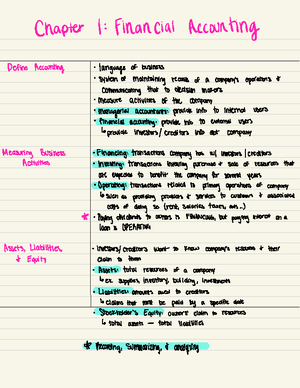 Chapter 1: Financial Accounting
Define Accounting
• language of business
• System of maintaining records of a company's operations &
communicating that to decision makers
• measure activities of the company
• managerial accountants: provide info to internal users
• financial accounting: provide info to external users
↳ provide investors/creditors info abt company
Measuring Business
Activities
• Financing: transactions company has w/ investors/creditors
• Investing: transactions involving purchase & sale of resources that
are expected to benefit the company for several years
• Operating: transactions related to primary operations of company
↳ such as providing products & services to customers & associated
costs of doing so (rent, salaries, taxes, etc.)
* Paying dividends to owners is FINANCING, but paying interest on a
loan is OPERATING
Assets, Liabilities,
& Equity
• Investors/creditors want to know company's resources & their
claim to them
• Assets: total resources of a company
↳ ex. supplies, inventory, building, investments
• Liabilities: amounts owed to creditors
↳ claims that must be paid by a specific date
• Stockholder's Equity: owners' claim to resources
↳ total assets — total liabilities
* Recording, summarizing, & analyzing